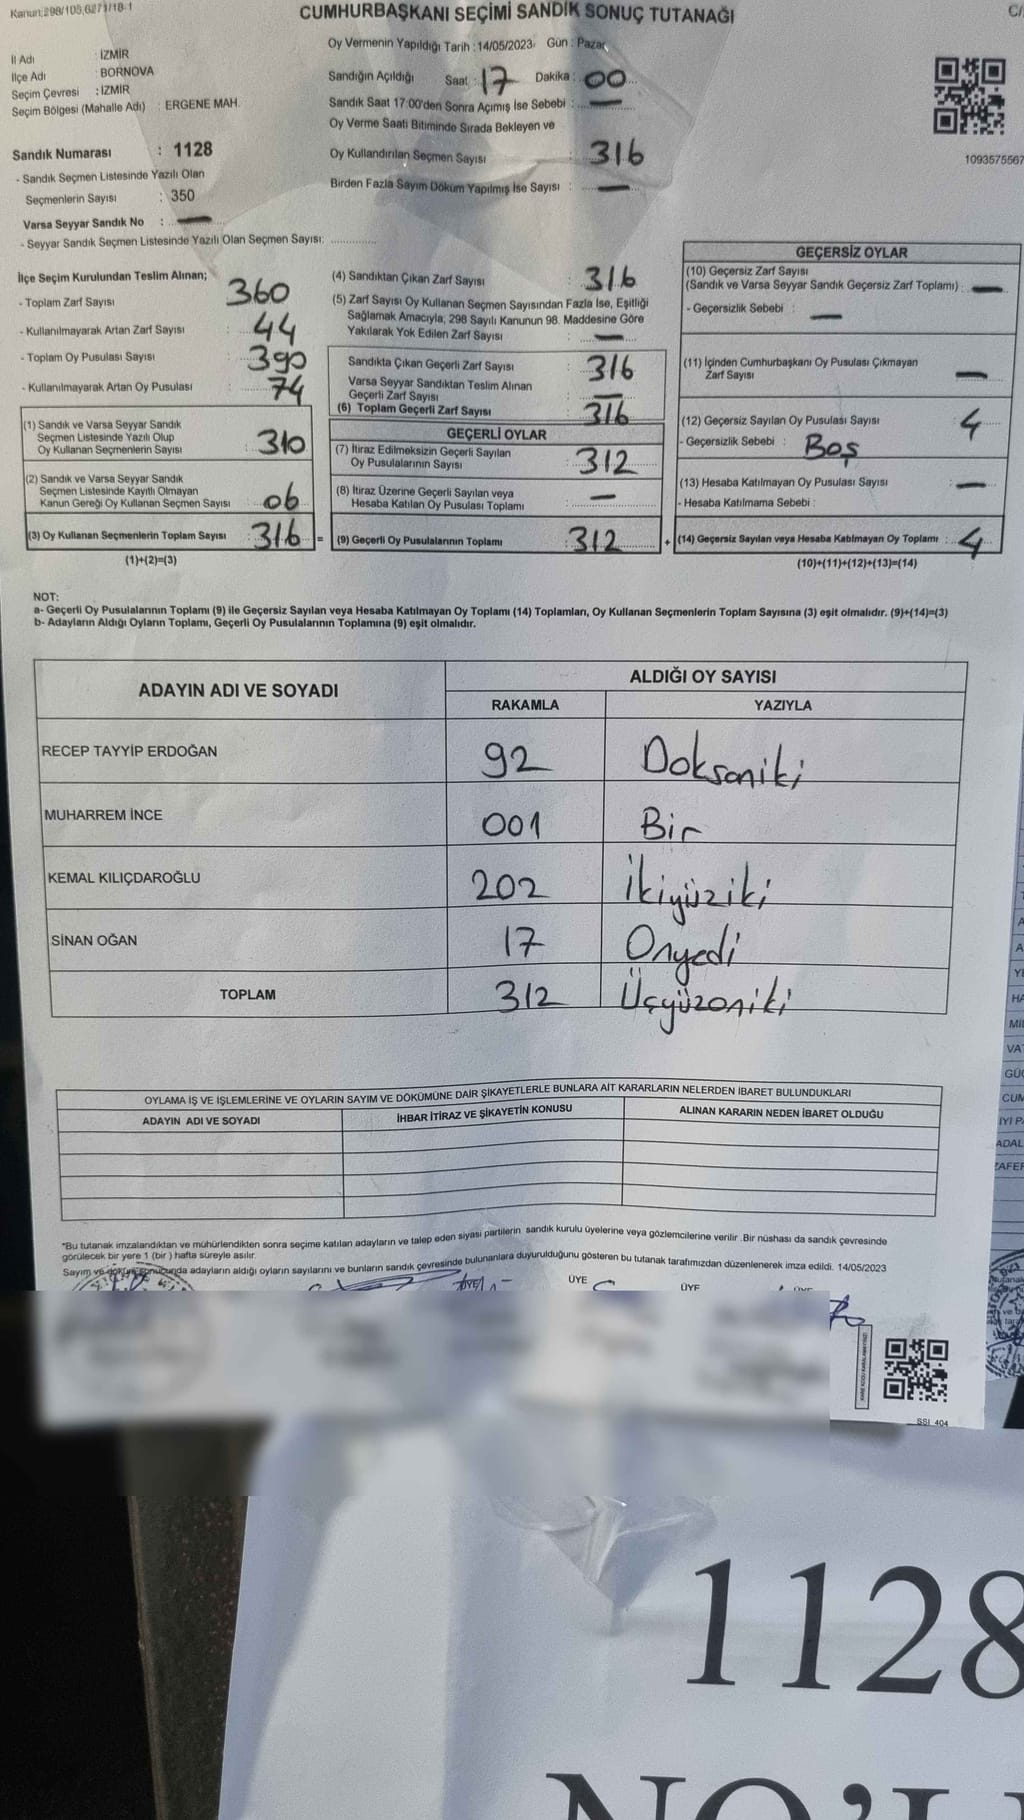 Kanun:298/105,6271/18-1
CUMHURBAŞKANI SEÇİMİ SANDIK SONUÇ TUTANAĞI
C/
İl Adı : İZMİR
İlçe Adı : BORNOVA
Seçim Çevresi : İZMİR
Seçim Bölgesi (Mahalle Adı) : ERGENE MAH.
Sandık Numarası : 1128
- Sandık Seçmen Listesinde Yazılı Olan
Seçmenlerin Sayısı : 350
Varsa Seyyar Sandık No : —
- Seyyar Sandık Seçmen Listesinde Yazılı Olan Seçmen Sayısı: ................
Oy Vermenin Yapıldığı Tarih : 14/05/2023 Gün : Pazar
Sandığın Açıldığı Saat : 17 Dakika : 00
Sandık Saat 17:00'den Sonra Açımış İse Sebebi : —
Oy Verme Saati Bitiminde Sırada Bekleyen ve
Oy Kullandırılan Seçmen Sayısı : 316
Birden Fazla Sayım Döküm Yapılmış İse Sayısı : —
1093575567
İlçe Seçim Kurulundan Teslim Alınan;
- Toplam Zarf Sayısı : 360
- Kullanılmayarak Artan Zarf Sayısı : 44
- Toplam Oy Pusulası Sayısı : 390
- Kullanılmayarak Artan Oy Pusulası : 74
(1) Sandık ve Varsa Seyyar Sandık
Seçmen Listesinde Yazılı Olup
Oy Kullanan Seçmenlerin Sayısı : 310
(2) Sandık ve Varsa Seyyar Sandık
Seçmen Listesinde Kayıtlı Olmayan
Kanun Gereği Oy Kullanan Seçmen Sayısı : 06
(3) Oy Kullanan Seçmenlerin Toplam Sayısı : 316 =
(1)+(2)=(3)
(4) Sandıktan Çıkan Zarf Sayısı : 316
(5) Zarf Sayısı Oy Kullanan Seçmen Sayısından Fazla İse, Eşitliği
Sağlamak Amacıyla; 298 Sayılı Kanunun 98. Maddesine Göre
Yakılarak Yok Edilen Zarf Sayısı : —
Sandıkta Çıkan Geçerli Zarf Sayısı : 316
Varsa Seyyar Sandıktan Teslim Alınan
Geçerli Zarf Sayısı : —
(6) Toplam Geçerli Zarf Sayısı : 316
GEÇERLİ OYLAR
(7) İtiraz Edilmeksizin Geçerli Sayılan
Oy Pusulalarının Sayısı : 312
(8) İtiraz Üzerine Geçerli Sayılan veya
Hesaba Katılan Oy Pusulası Toplamı : —
(9) Geçerli Oy Pusulalarının Toplamı : 312 +
GEÇERSİZ OYLAR
(10) Geçersiz Zarf Sayısı
(Sandık ve Varsa Seyyar Sandık Geçersiz Zarf Toplamı) : —
- Geçersizlik Sebebi : —
(11) İçinden Cumhurbaşkanı Oy Pusulası Çıkmayan
Zarf Sayısı —
(12) Geçersiz Sayılan Oy Pusulası Sayısı 4
- Geçersizlik Sebebi : Boş
(13) Hesaba Katılmayan Oy Pusulası Sayısı —
- Hesaba Katılmama Sebebi :
(14) Geçersiz Sayılan veya Hesaba Katılmayan Oy Toplamı : 4
(10)+(11)+(12)+(13)=(14)
NOT:
a- Geçerli Oy Pusulalarının Toplamı (9) ile Geçersiz Sayılan veya Hesaba Katılmayan Oy Toplamı (14) Toplamları, Oy Kullanan Seçmenlerin Toplam Sayısına (3) eşit olmalıdır. (9)+(14)=(3)
b- Adayların Aldığı Oyların Toplamı, Geçerli Oy Pusulalarının Toplamına (9) eşit olmalıdır.
ADAYIN ADI VE SOYADI ALDIĞI OY SAYISI
RAKAMLA YAZIYLA
RECEP TAYYİP ERDOĞAN 92 Doksaniki
MUHARREM İNCE 001 Bir
KEMAL KILIÇDAROĞLU 202 İkiyüziki
SİNAN OĞAN 17 Onyedi
TOPLAM 312 Üçyüzoniki
OYLAMA İŞ VE İŞLEMLERİNE VE OYLARIN SAYIM VE DÖKÜMÜNE DAİR ŞİKAYETLERLE BUNLARA AİT KARARLARIN NELERDEN İBARET BULUNDUKLARI
ADAYIN ADI VE SOYADI İHBAR İTİRAZ VE ŞİKAYETİN KONUSU ALINAN KARARIN NEDEN İBARET OLDUĞU
*Bu tutanak imzalandıktan ve mühürlendikten sonra seçime katılan adayların ve talep eden siyasi partilerin sandık kurulu üyelerine veya gözlemcilerine verilir. Bir nüshası da sandık çevresinde
görülecek bir yere 1 (bir) hafta süreyle asılır.
Sayım ve döküm sonucunda adayların aldığı oyların sayılarını ve bunların sandık çevresinde bulunanlara duyurulduğunu gösteren bu tutanak tarafımızdan düzenlenerek imza edildi. 14/05/2023
ÜYE ÜYE ÜYE ÜYE
SSI 404
A
A
YE
HA
MİL
VA
GÜÇ
CUM
İYİ PA
ADAL
ZAFER
1128
NO'LU